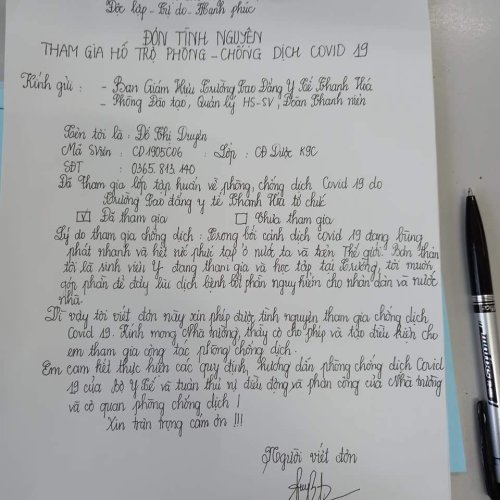 Độc lập - Tự do - Hạnh phúc
ĐƠN TÌNH NGUYỆN
THAM GIA HỖ TRỢ PHÒNG - CHỐNG DỊCH COVID 19
Kính gửi : - Ban Giám Hiệu Trường Cao Đẳng Y Tế Thanh Hóa
- Phòng Đào tạo, Quản lý HS-SV, Đoàn Thanh niên
Tên tôi là : Đỗ Thị Duyên
Mã SViên : CD1905C06 Lớp : CĐ Dược K9C
SĐT : 0365.813.140
Đã Tham gia lớp tập huấn về phòng, chống dịch Covid 19 do
Trường Cao đẳng y tế Thanh Hóa tổ chức
Đã tham gia Chưa tham gia
Lý do tham gia chống dịch : Trong bối cảnh dịch covid 19 đang bùng
phát nhanh và hết sức phức tạp ở nước ta và trên Thế giới. Bản thân
tôi là sinh viên Y đang tham gia và học tập tại Trường, tôi muốn
góp phần để đẩy lùi dịch bệnh bớt phần nguy hiểm cho nhân dân và nước
nhà.
Vì vậy tôi viết đơn này xin phép được tình nguyện tham gia chống dịch
Covid 19. Kính mong Nhà trường, thầy cô cho phép và tạo điều kiện cho
em tham gia công tác phòng chống dịch.
Em cam kết thực hiện các quy định, hướng dẫn phòng chống dịch Covid
19 của bộ Y Tế và tuân thủ sự điều động và phân công của Nhà trường
và cơ quan phòng chống dịch !
Xin trân trọng cảm ơn !!!
Người viết đơn